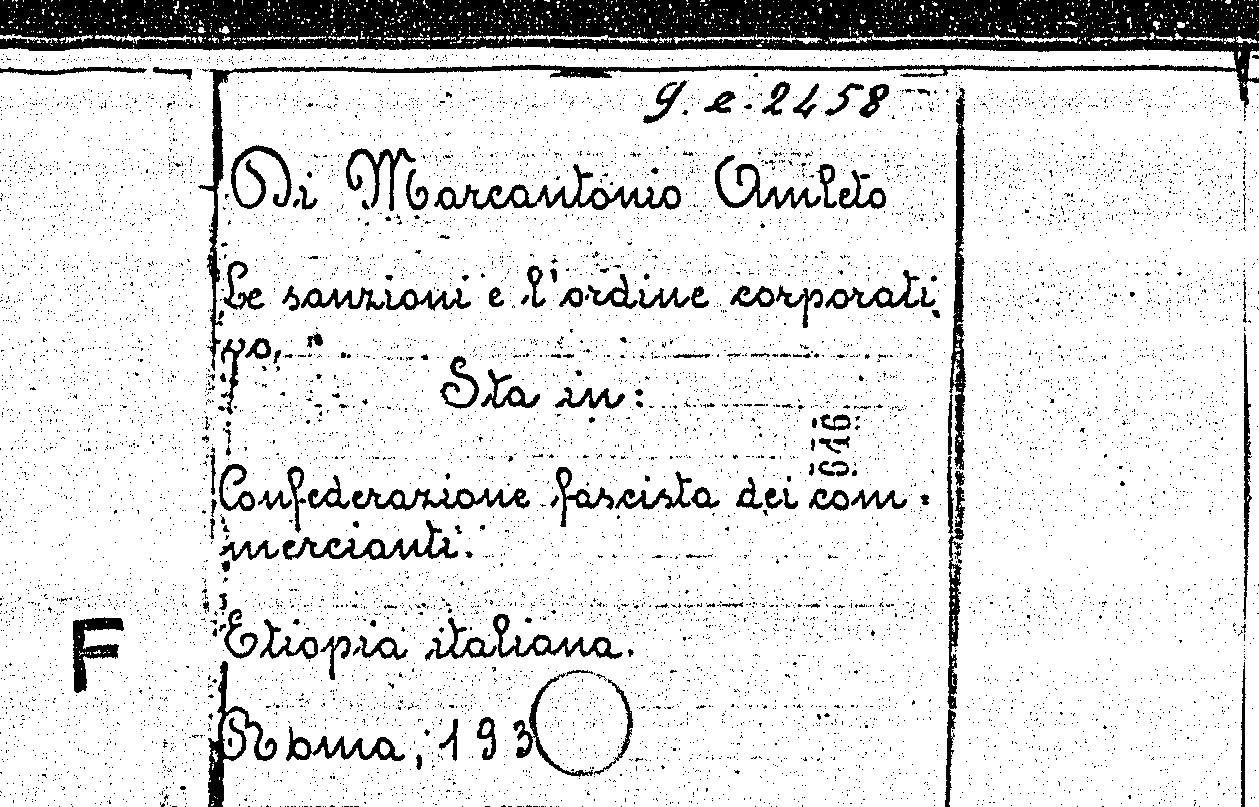 G. e. 2458
Di Marcantonio Amleto
Le sanzioni e l'ordine corporati
vo,
Sta in:
646
Confederazione fascista dei com-
mercianti.
Etiopia italiana.
F
Roma, 193